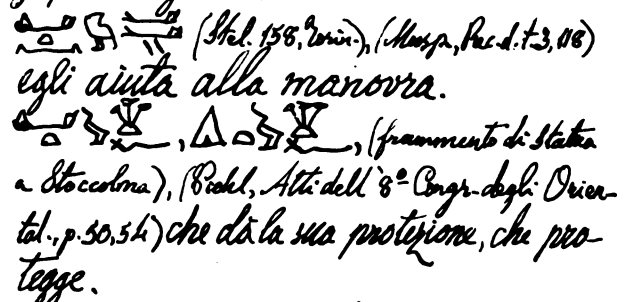 (Stel. 158, Torin.), (Masp., Rec. d. t. 3, 118)
egli aiuta alla manovra.
, , (frammento di Statua
a Stoccolma), (Piehl, Atti dell' 8º Congr. degli Orien-
tal., p. 50, 54) che dà la sua protezione, che pro-
tegge.